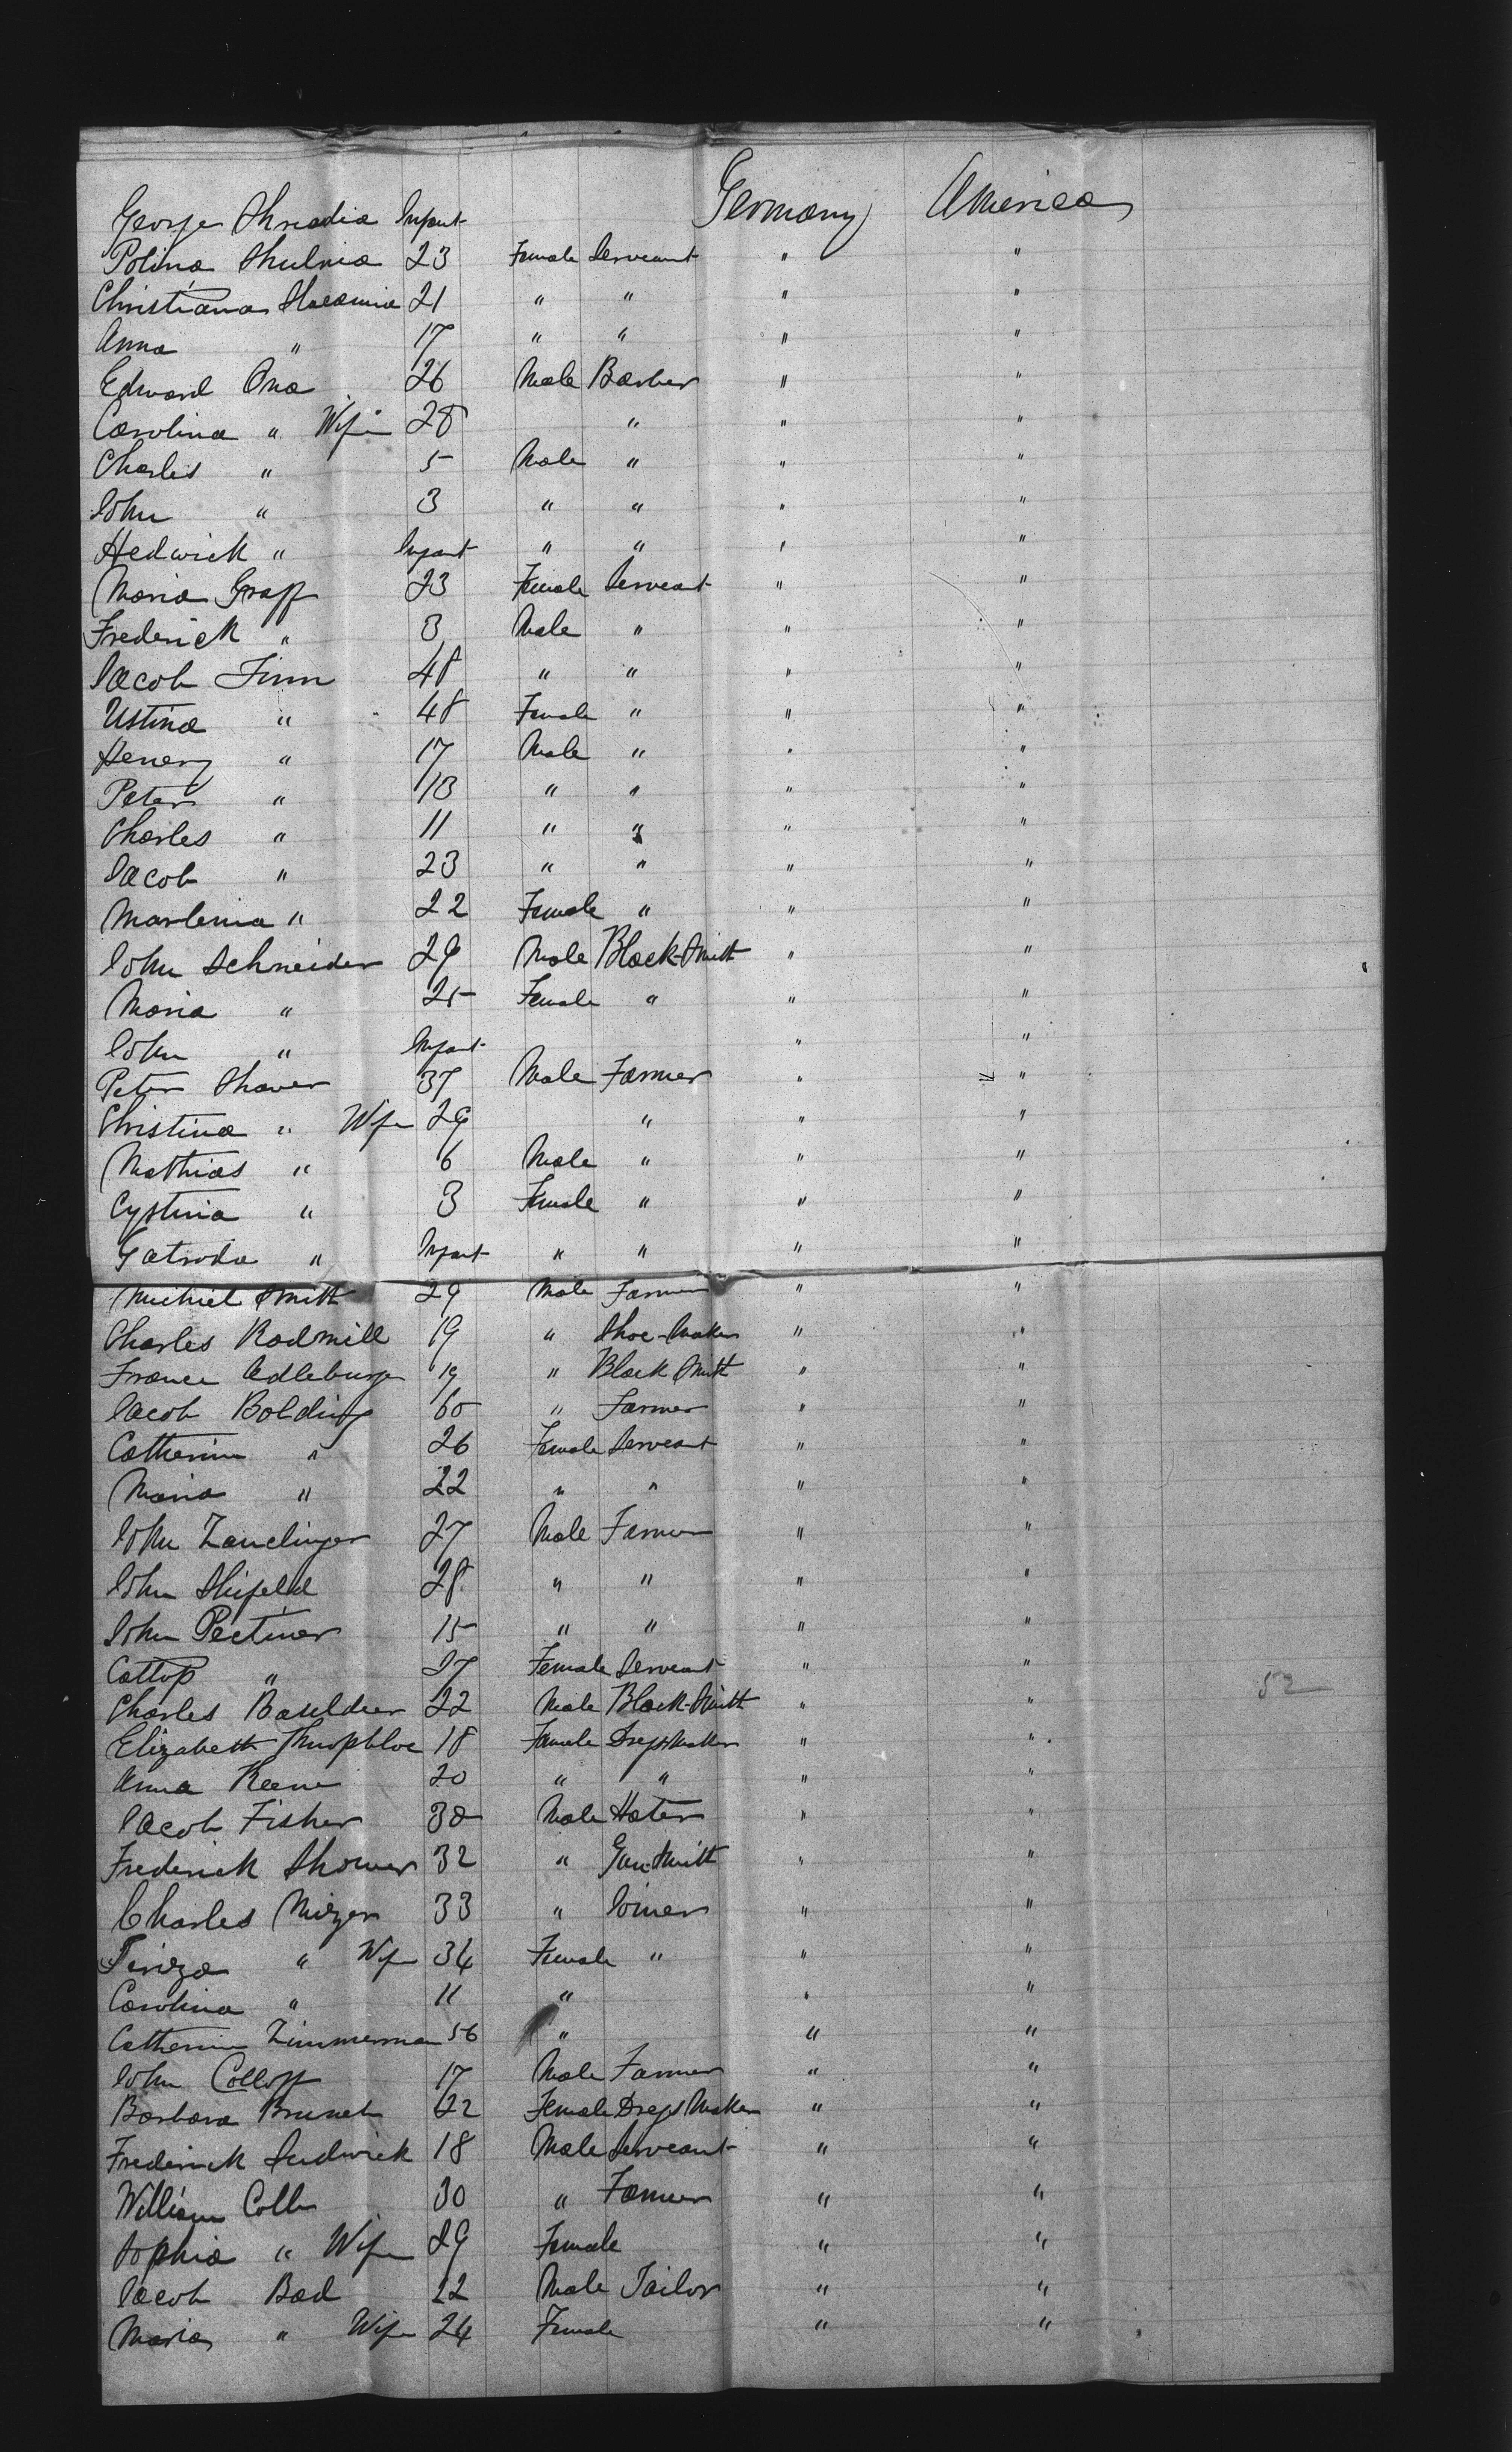 George Shradia Infant Germany America
Polina Shulnia 23 Female Serveant " "
Christiana 21 " " " "
Anna " 17 " " " "
Edward Ona 26 Male Barber " "
Carolina " Wife 28 " " "
Charles " 5 Male " " "
John " 3 " " " "
Hedwick " Infant " " " "
Maria Graff 23 Female Serveant " "
Frederick " 3 Male " " "
Jacob Finn 48 " " " "
Ustina " 48 Female " " "
Henery " 17 Male " " "
Peter " 13 " " " "
Charles " 11 " " " "
Jacob " 23 " " " "
Marlenia " 22 Female " " "
John Schneider 29 Male Black-Smith " "
Maria " 25 Female " " "
John " Infant " "
Peter Shaver 37 Male Farmer " "
Christina " Wife 29 " " "
Mathias " 6 Male " " "
Cystina " 3 Female " " "
Gatroda " Infant " " " "
Michiel Smith 29 Male Farmer " "
Charles Rodmill 19 " Shoe-Maker " "
France Adleburge 19 " Black Smith " "
Jacob Bolding 60 " Farmer " "
Catherine " 26 Female Serveant " "
Maria " 22 " " " "
John Zanclinger 27 Male Farmer " "
John Shifeld 28 " " " "
John Pectiner 15 " " " "
Cattop " 27 Female Serveant " "
Charles 22 Male Black-Smith " " 52
Elizabeth 18 Female Dress Maker " "
Anna Keene 20 " " " "
Jacob Fisher 30 Male Hater " "
Frederick Shower 32 " Gun-Smith " "
Charles Mizer 33 " Joiner " "
Tiriza " Wife 34 Female " " "
Carolina " 11 " " "
Catherine Zimmerman 56 " " "
John Collop 17 Male Farmer " "
Barbara Brunch 22 Female Dress Maker " "
Frederick Ludwick 18 Male Serveant " "
William Colb 30 " Farmer " "
Sophia " Wife 29 Female " "
Jacob Bad 22 Male Tailor " "
Maria " Wife 24 Female " "